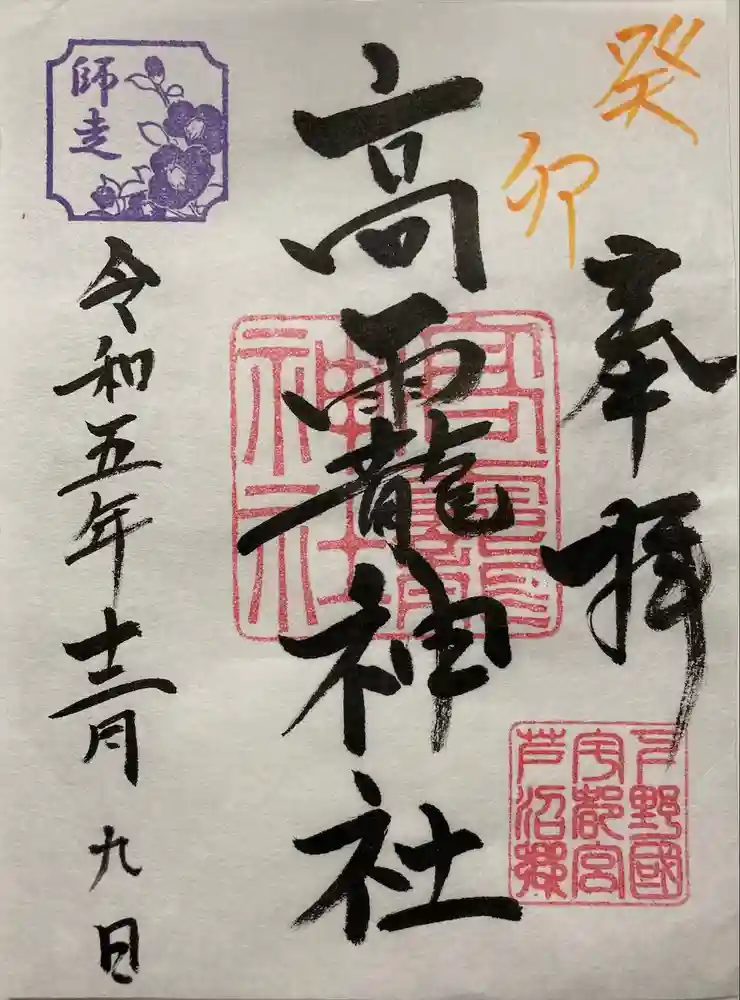 癸卯
奉拝
下野國
宇都宮
芦沼
高靇神社
高龗
神社
師走
令和五年十二月九日